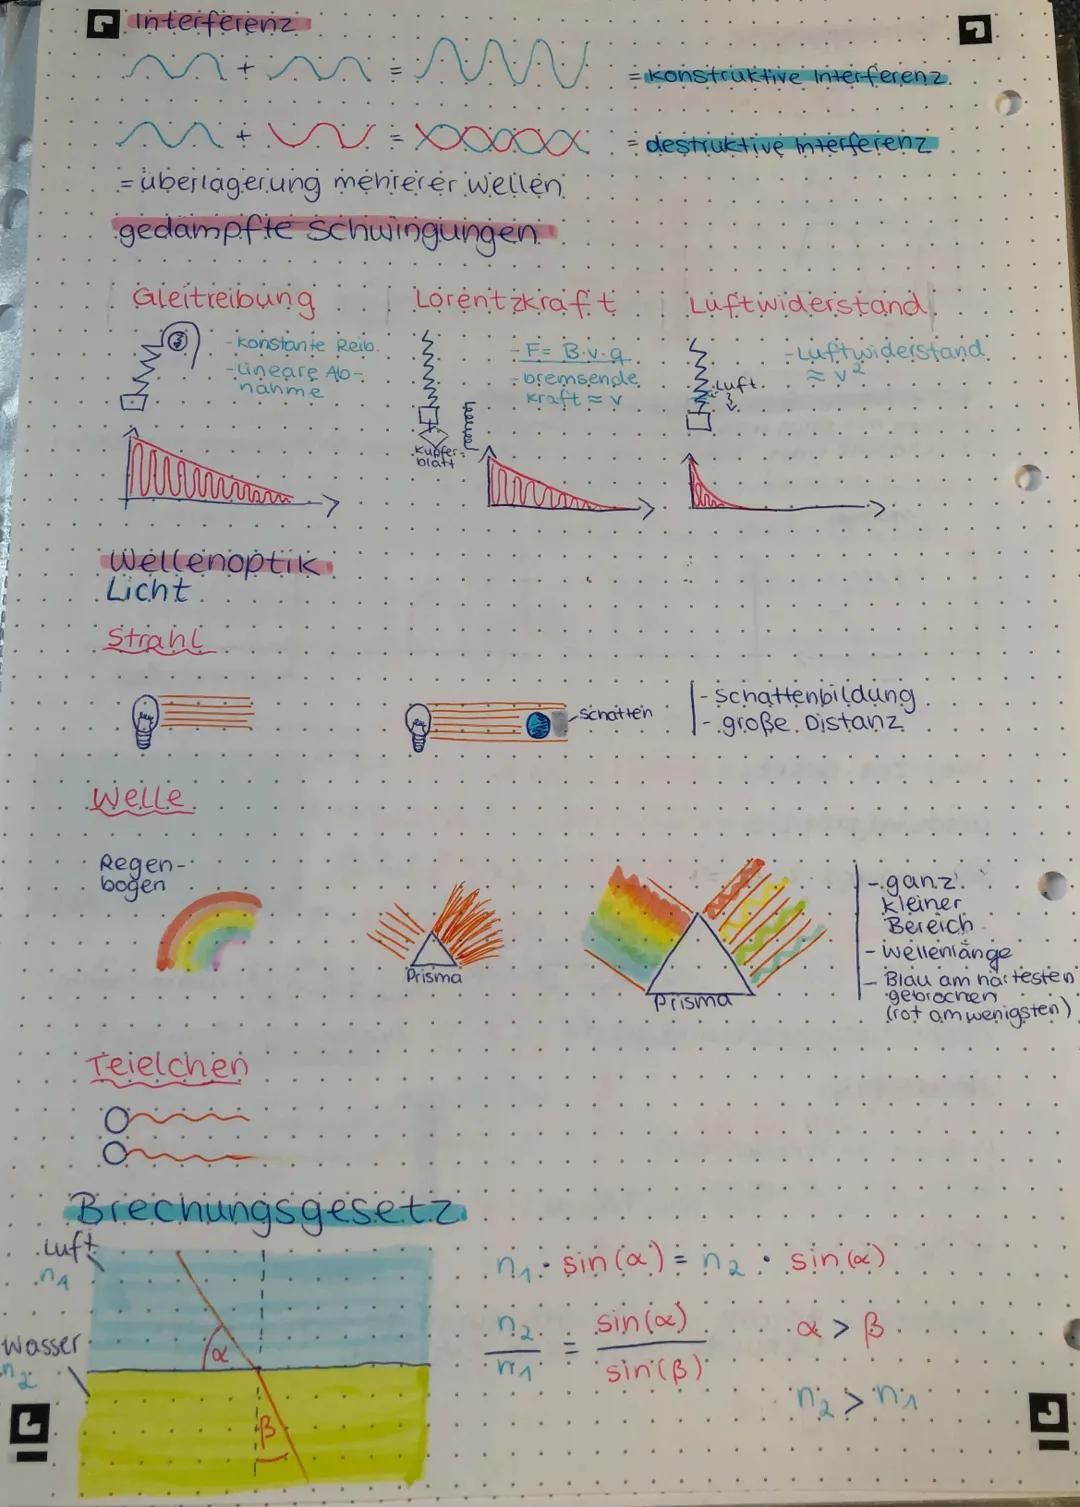 Interferenz
+ = = konstruktive Interferenz.
+ = = destruktive Interferenz
= überlagerung mehrerer Wellen
gedämpfte Schwingungen
Gleitreibung
- konstante Reib.
- Lineare Ab-
nahme
Lorentzkraft
- F= B·v·q
- bremsende
Kraft ≈ v
Kupfer-
blatt
Luftwiderstand
- Luftwiderstand
≈ v²
Luft
Wellenoptik
Licht
Strahl
Schatten
- Schattenbildung
- große Distanz
Welle
Regen-
bogen
Prisma
Prisma
- ganz
kleiner
Bereich
- Wellenlänge
- Blau am härtesten
gebrochen
(rot am wenigsten)
Teielchen
Brechungsgesetz
Luft
n1
Wasser
n2
α
β
n1 · sin(α) = n2 · sin(α)
n2 / n1 = sin(α) / sin(β)
α > β
n2 > n1